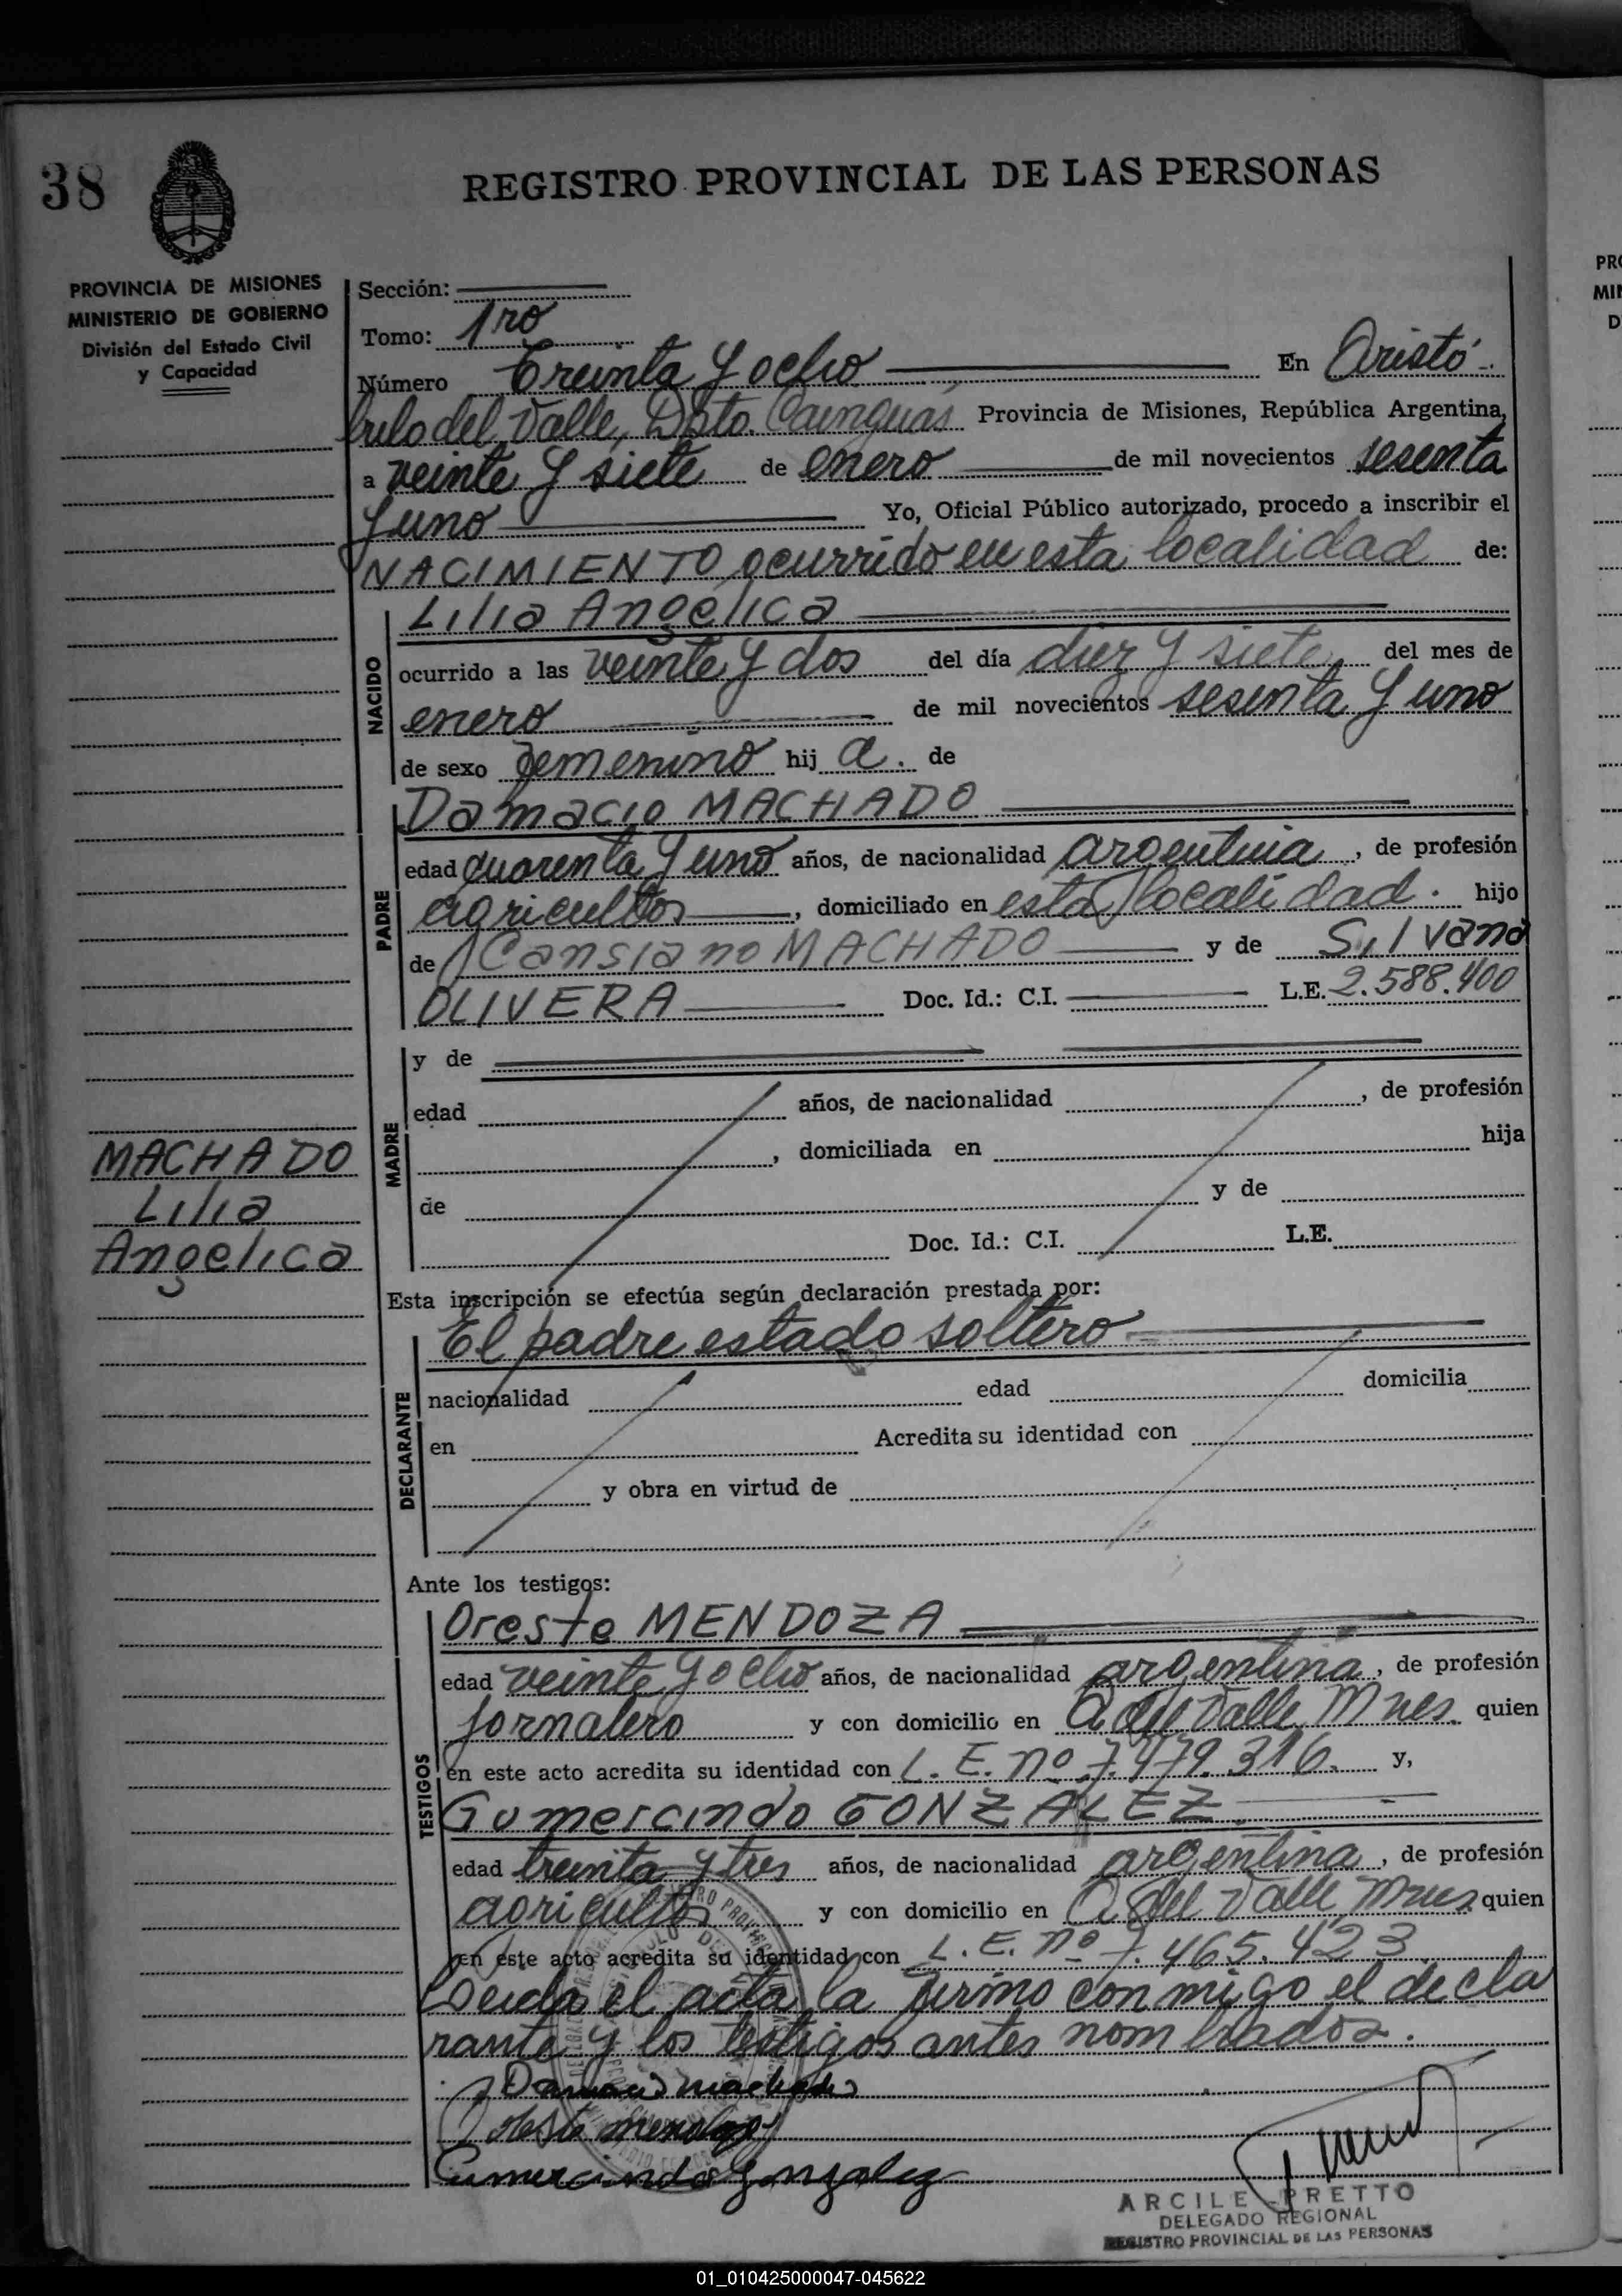 38
REGISTRO PROVINCIAL DE LAS PERSONAS
PROVINCIA DE MISIONES
MINISTERIO DE GOBIERNO
División del Estado Civil
y Capacidad
Sección:
Tomo: 1ro
Número Treinta y ocho En Aristó-
bulo del Valle, Dpto. Cainguás Provincia de Misiones, República Argentina,
a veinte y siete de enero de mil novecientos sesenta
y uno Yo, Oficial Público autorizado, procedo a inscribir el
NACIMIENTO ocurrido en esta localidad de:
NACIDO
Lilia Angélica
ocurrido a las veinte y dos del día diez y siete del mes de
enero de mil novecientos sesenta y uno
de sexo femenino hij a. de
PADRE
Damacio MACHADO
edad cuarenta y uno años, de nacionalidad argentina, de profesión
agricultor, domiciliado en esta localidad. hijo
de Cansiano MACHADO y de Silvana
OLIVERA Doc. Id.: C.I. L.E. 2.588.400
MADRE
y de
edad años, de nacionalidad , de profesión
, domiciliada en hija
de y de
Doc. Id.: C.I. L.E.
MACHADO
Lilia
Angelica
Esta inscripción se efectúa según declaración prestada por:
DECLARANTE
El padre estado soltero
nacionalidad edad domicilia
en Acredita su identidad con
y obra en virtud de
Ante los testigos:
TESTIGOS
Oreste MENDOZA
edad veinte y ocho años, de nacionalidad argentina, de profesión
jornalero y con domicilio en A. del Valle Mnes. quien
en este acto acredita su identidad con L. E. nº 7.479.316. y,
Gumercindo GONZÁLEZ
edad treinta y tres años, de nacionalidad argentina, de profesión
agricultor y con domicilio en A. del Valle Mnes. quien
en este acto acredita su identidad con L. E. nº 7.465.423
Leida el acta, la firmo conmigo el decla
rante y los testigos antes nombrados.
Damacio Machado
Oreste Mendoza
Gumercindo Gonzalez
ARCILE PRETTO
DELEGADO REGIONAL
REGISTRO PROVINCIAL DE LAS PERSONAS
01_010425000047-045622